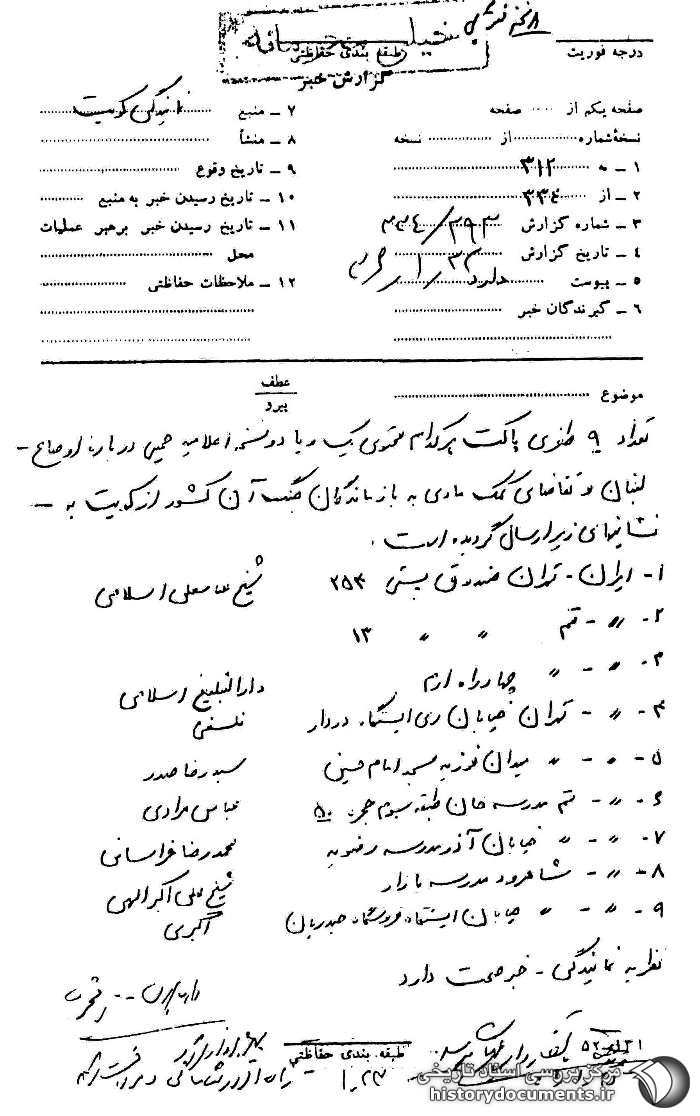 خیلی محرمانه
طبقه بندی حفاظتی
گزارش خبر
درجه فوریت
صفحه یکم از صفحه
نسخهٔ شماره از نسخه
۱ - به ۳۱۲
۲ - از ۳۳۴
۳ - شماره گزارش
۴ - تاریخ گزارش
۵ - پیوست دارد
۶ - گیرندگان خبر
۷ - منبع نمایندگی کویت
۸ - منشأ
۹ - تاریخ وقوع
۱۰ - تاریخ رسیدن خبر به منبع
۱۱ - تاریخ رسیدن خبر برهبر عملیات
محل
۱۲ - ملاحظات حفاظتی
موضوع
عطف
پیرو
تعداد ۹ طغری پاکت هرکدام محتوی یک و یا دو نسخه اعلامیه خمینی درباره اوضاع -
لبنان و تقاضای کمک مادی به بازماندگان جنگ آن کشور از کویت به -
نشانیهای زیر ارسال گردیده است .
۱ - ایران - تهران صندوق پستی ۲۵۳ شیخ عباسعلی اسلامی
۲ - " - قم " " ۱۳
۳ - " - " چهارراه ارم دارالتبلیغ اسلامی
۴ - " - تهران خیابان ری ایستگاه دردار فلسفی
۵ - " - " میدان فوزیه مسجد امام حسین سید رضا صدر
۶ - " - قم مدرسه خان طبقه سوم حجره ۵۰ عباس مرادی
۷ - " - " خیابان آذر مدرسه رضویه محمد رضا خراسانی
۸ - " - شاهرود مدرسه بازار شیخ علی اکبر الهی
۹ - " - " خیابان ایستگاه فروشگاه حیدریان اکبری
نظریه نمایندگی - خبر صحت دارد
طبقه بندی حفاظتی
مرکز بررسی اسناد تاریخی
historydocuments.ir